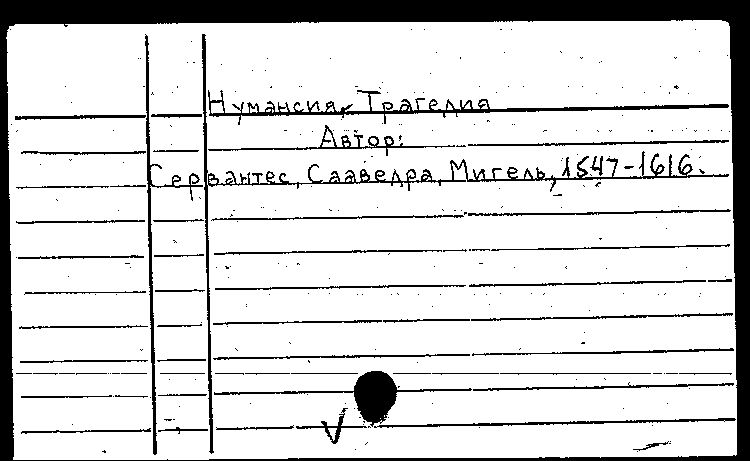 Нумансия, Трагедия
Автор:
Сервантес, Сааведра, Мигель, 1547-1616.